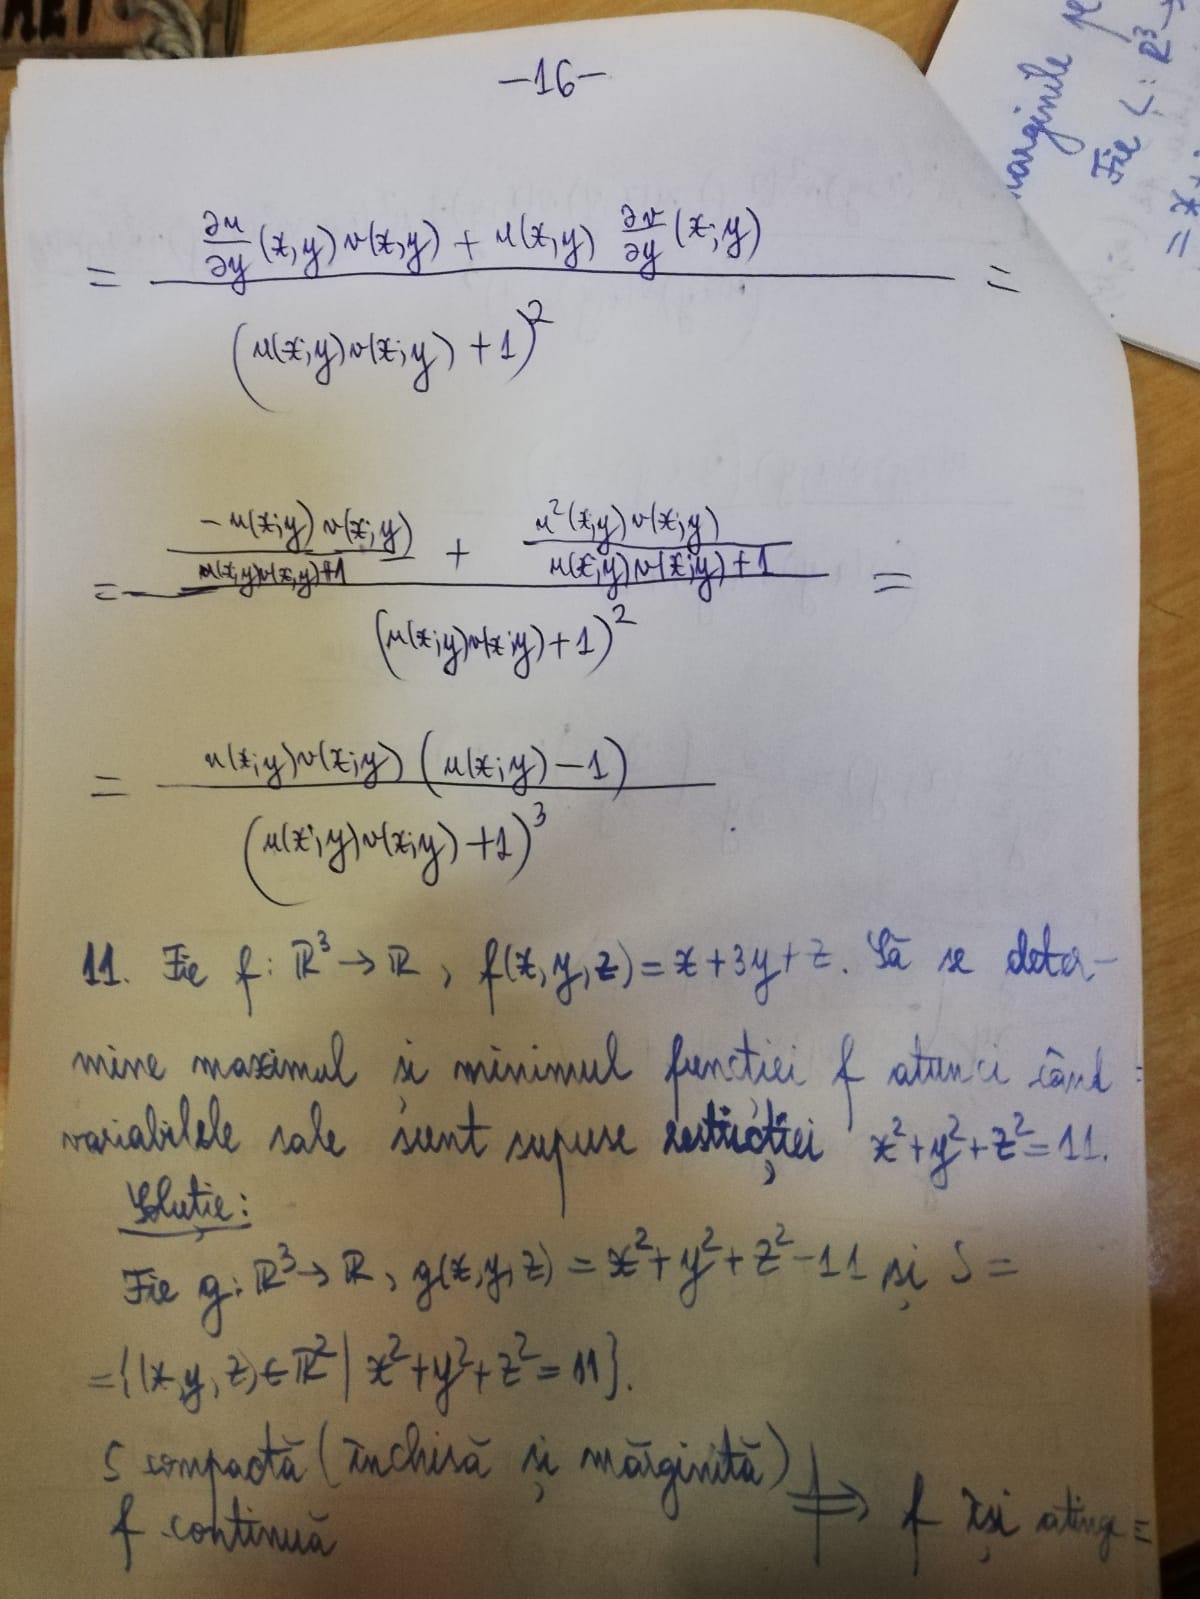 -16-
= (∂u/∂y (x,y) v(x,y) + u(x,y) ∂v/∂y (x;y)) / (u(x;y)v(x;y) + 1)² =
= (-u(x;y) v(x;y) / (u(x;y)v(x;y)+1) + u²(x;y)v(x;y) / (u(x;y)v(x;y)+1)) / (u(x;y)v(x;y)+1)² =
= u(x;y)v(x;y) (u(x;y)-1) / (u(x;y)v(x;y)+1)³.
11. Fie f: ℝ³→ℝ, f(x,y,z)=x+3y+z. Să se deter-
mine maximul și minimul funcției f atunci când
variabilele sale sunt supuse restricției x²+y²+z²=11.
Soluție:
Fie g: ℝ³→ℝ, g(x,y,z)=x²+y²+z²-11 și S=
={(x,y,z)∈ℝ² | x²+y²+z²=11}.
S compactă (închisă și mărginită)
f continuă ⟹ f își atinge
marginile
Fie L: ℝ³→
= x+